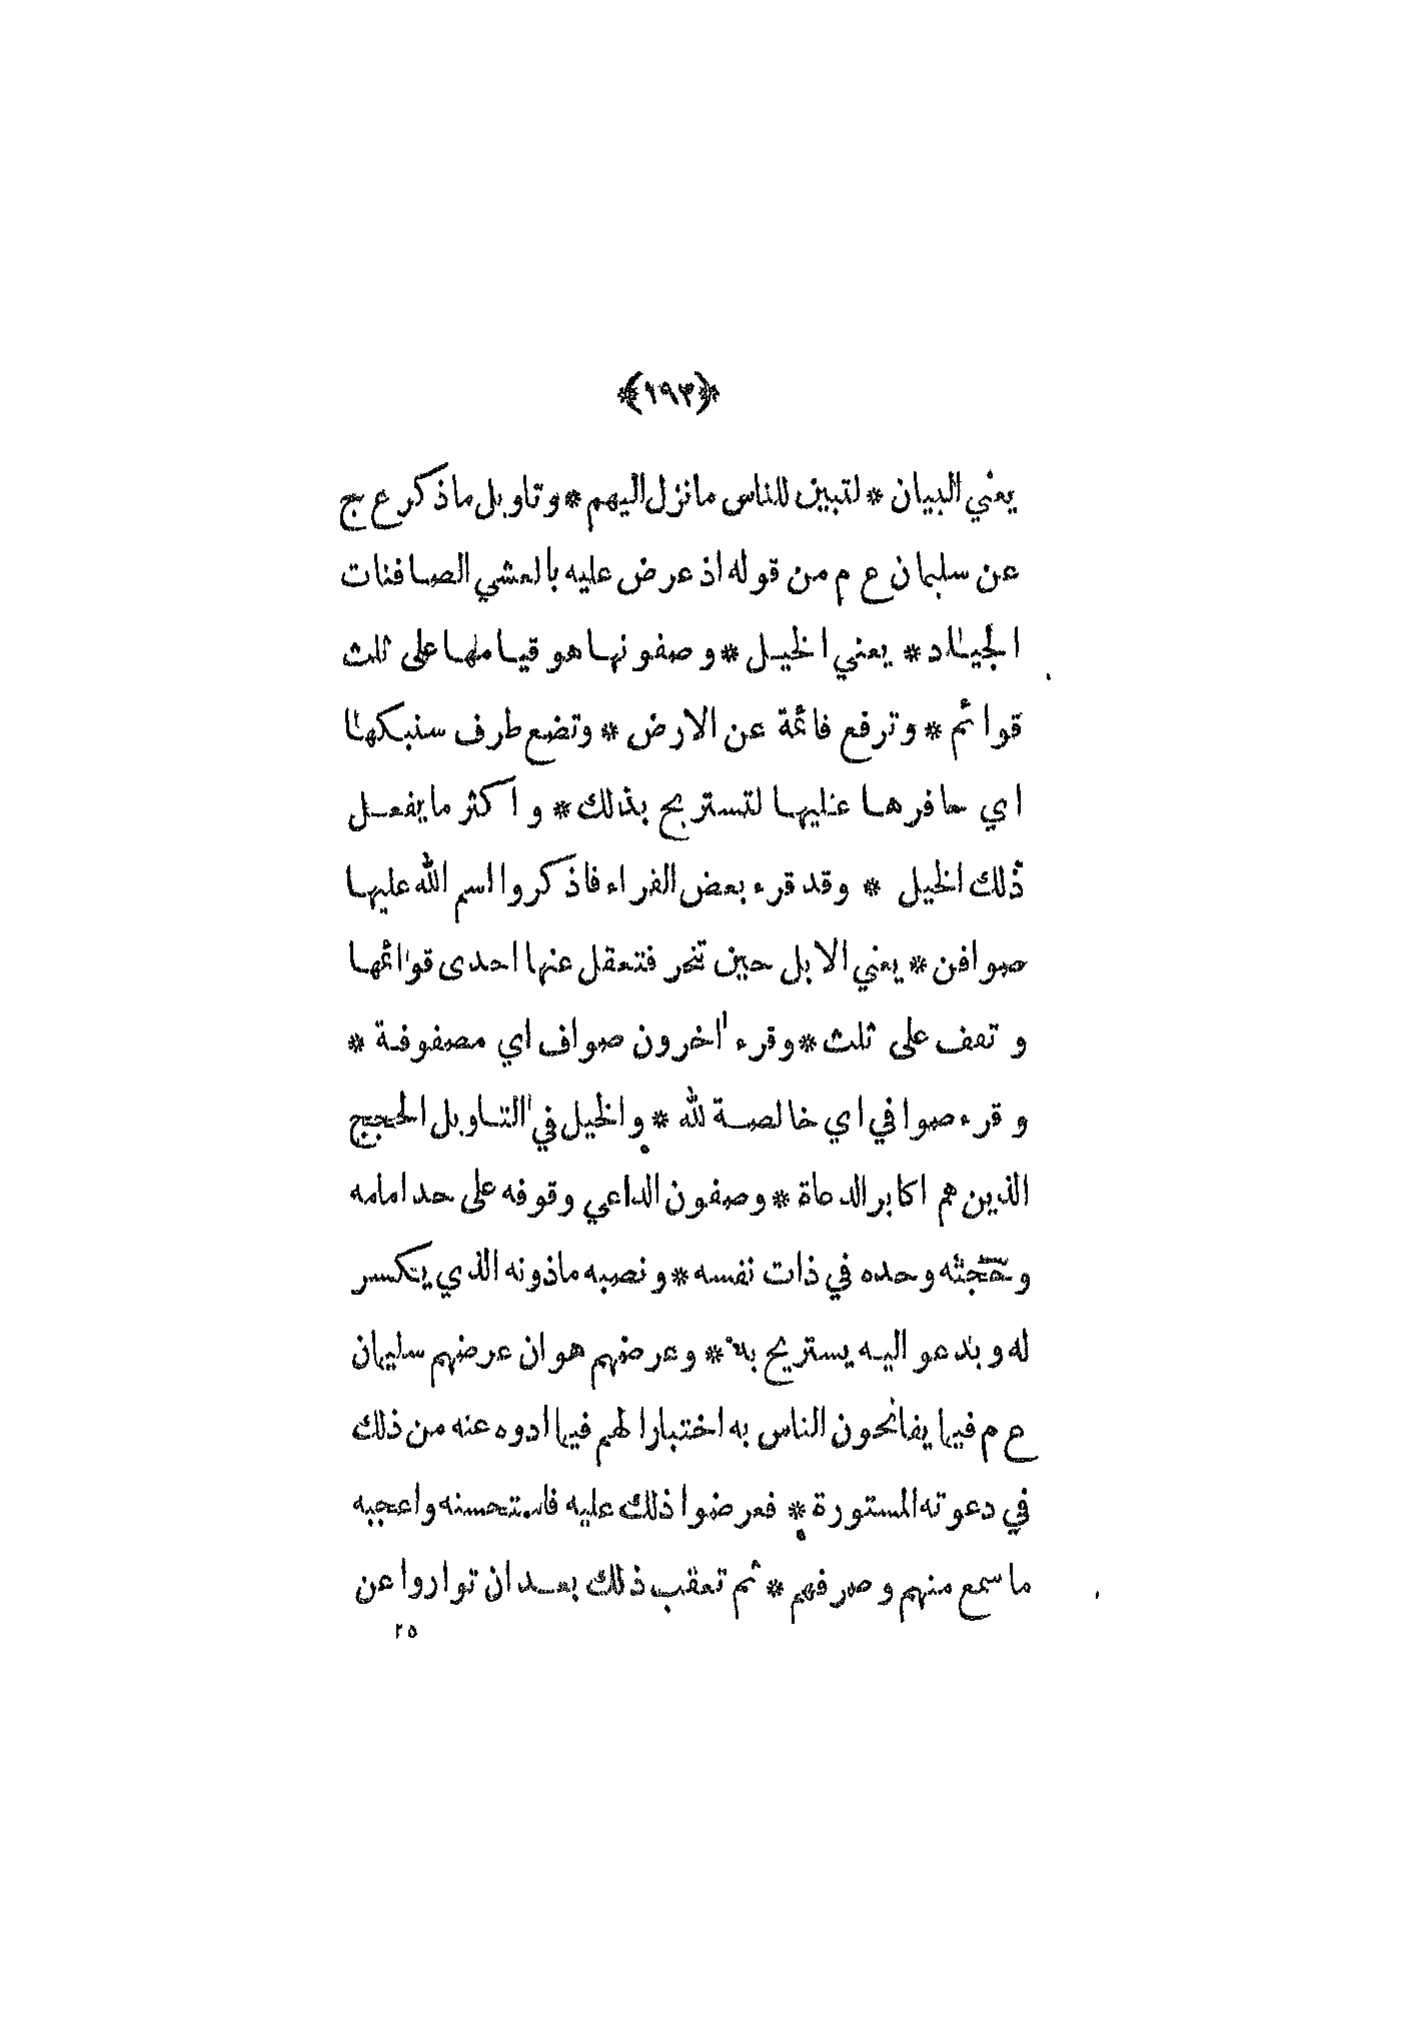 ﴿١٩٣﴾
يعني البيان * لتبين للناس ما نزل اليهم * وتاويل ما ذكر ع ج
عن سليمان ع م من قوله اذ عرض عليه بالعشي الصافنات
الجياد * يعني الخيل * وصفونها هو قيامها على ثلث
قوائم * وترفع قائمة عن الارض * وتضع طرف سنبكها
اي حافرها عليها لتستريح بذلك * واكثر ما يفعل
ذلك الخيل * وقد قرء بعض القراء فاذكروا اسم الله عليها
صوافن * يعني الابل حين تنحر فتعقل عنها احدى قوائمها
وتقف على ثلث * وقرء اخرون صواف اي مصفوفة *
وقرء صوافي اي خالصة لله * والخيل في التاويل الحجج
الذين هم اكابر الدعاة * وصفون الداعي وقوفه على حد امامه
وحجته وحده في ذات نفسه * ونصبه ماذونه الذي يتكسر
له ويدعو اليه يستريح به * وعرضهم هو ان عرضهم سليمان
ع م فيما يفاتحون الناس به اختبارا لهم فيما ادوه عنه من ذلك
في دعوته المستورة * فعرضوا ذلك عليه فاستحسنه واعجبه
ما سمع منهم وصرفهم * ثم تعقب ذلك بعد ان تواروا عن
٢٥